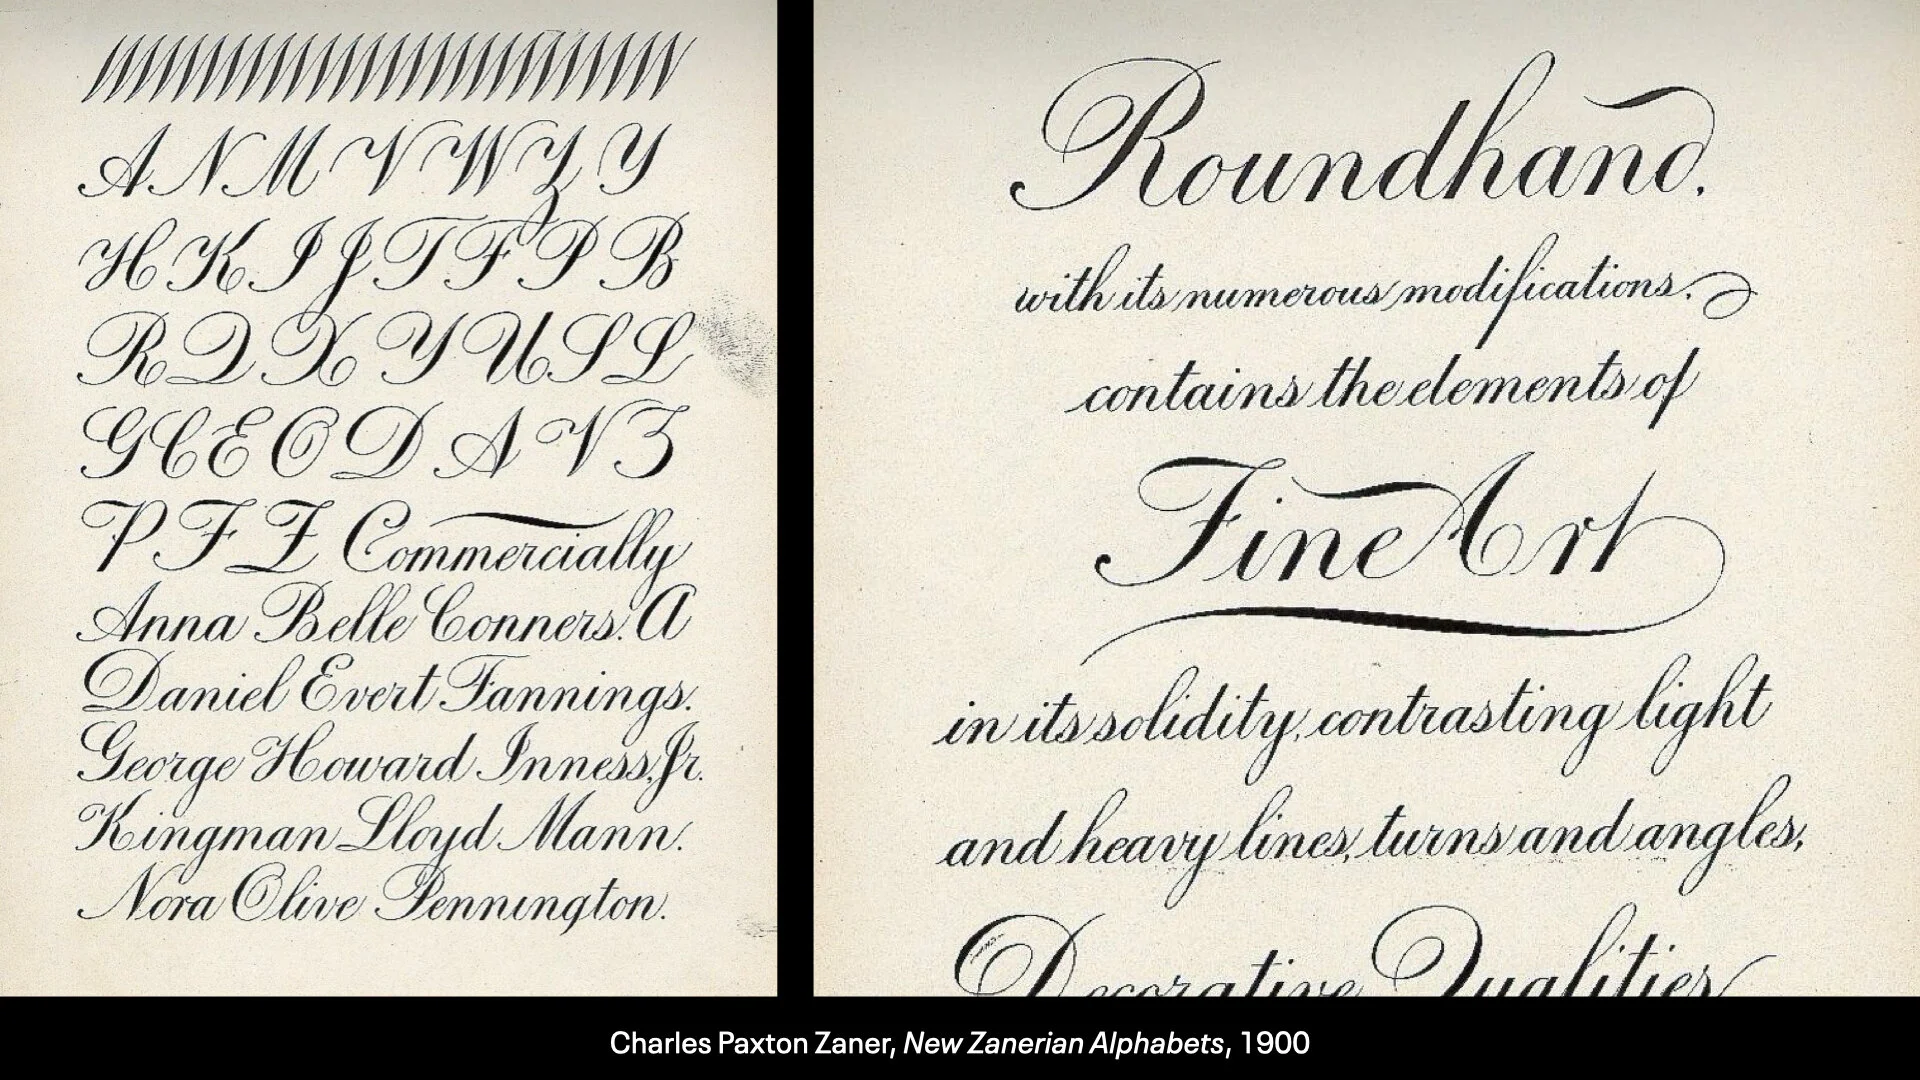 A N M V W Z Y
H K I J T F P B
R Q X Y U S L
G C E O D A V Z
P F Z Commercially
Anna Belle Conners. A
Daniel Evert Fannings.
George Howard Inness, Jr.
Kingman Lloyd Mann.
Nora Olive Pennington.
Roundhand.
with its numerous modifications.
contains the elements of
Fine Art
in its solidity, contrasting light
and heavy lines, turns and angles,
Decorative Qualities
Charles Paxton Zaner, New Zanerian Alphabets, 1900